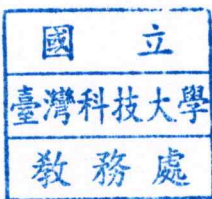 國立
臺灣科技大學
教務處